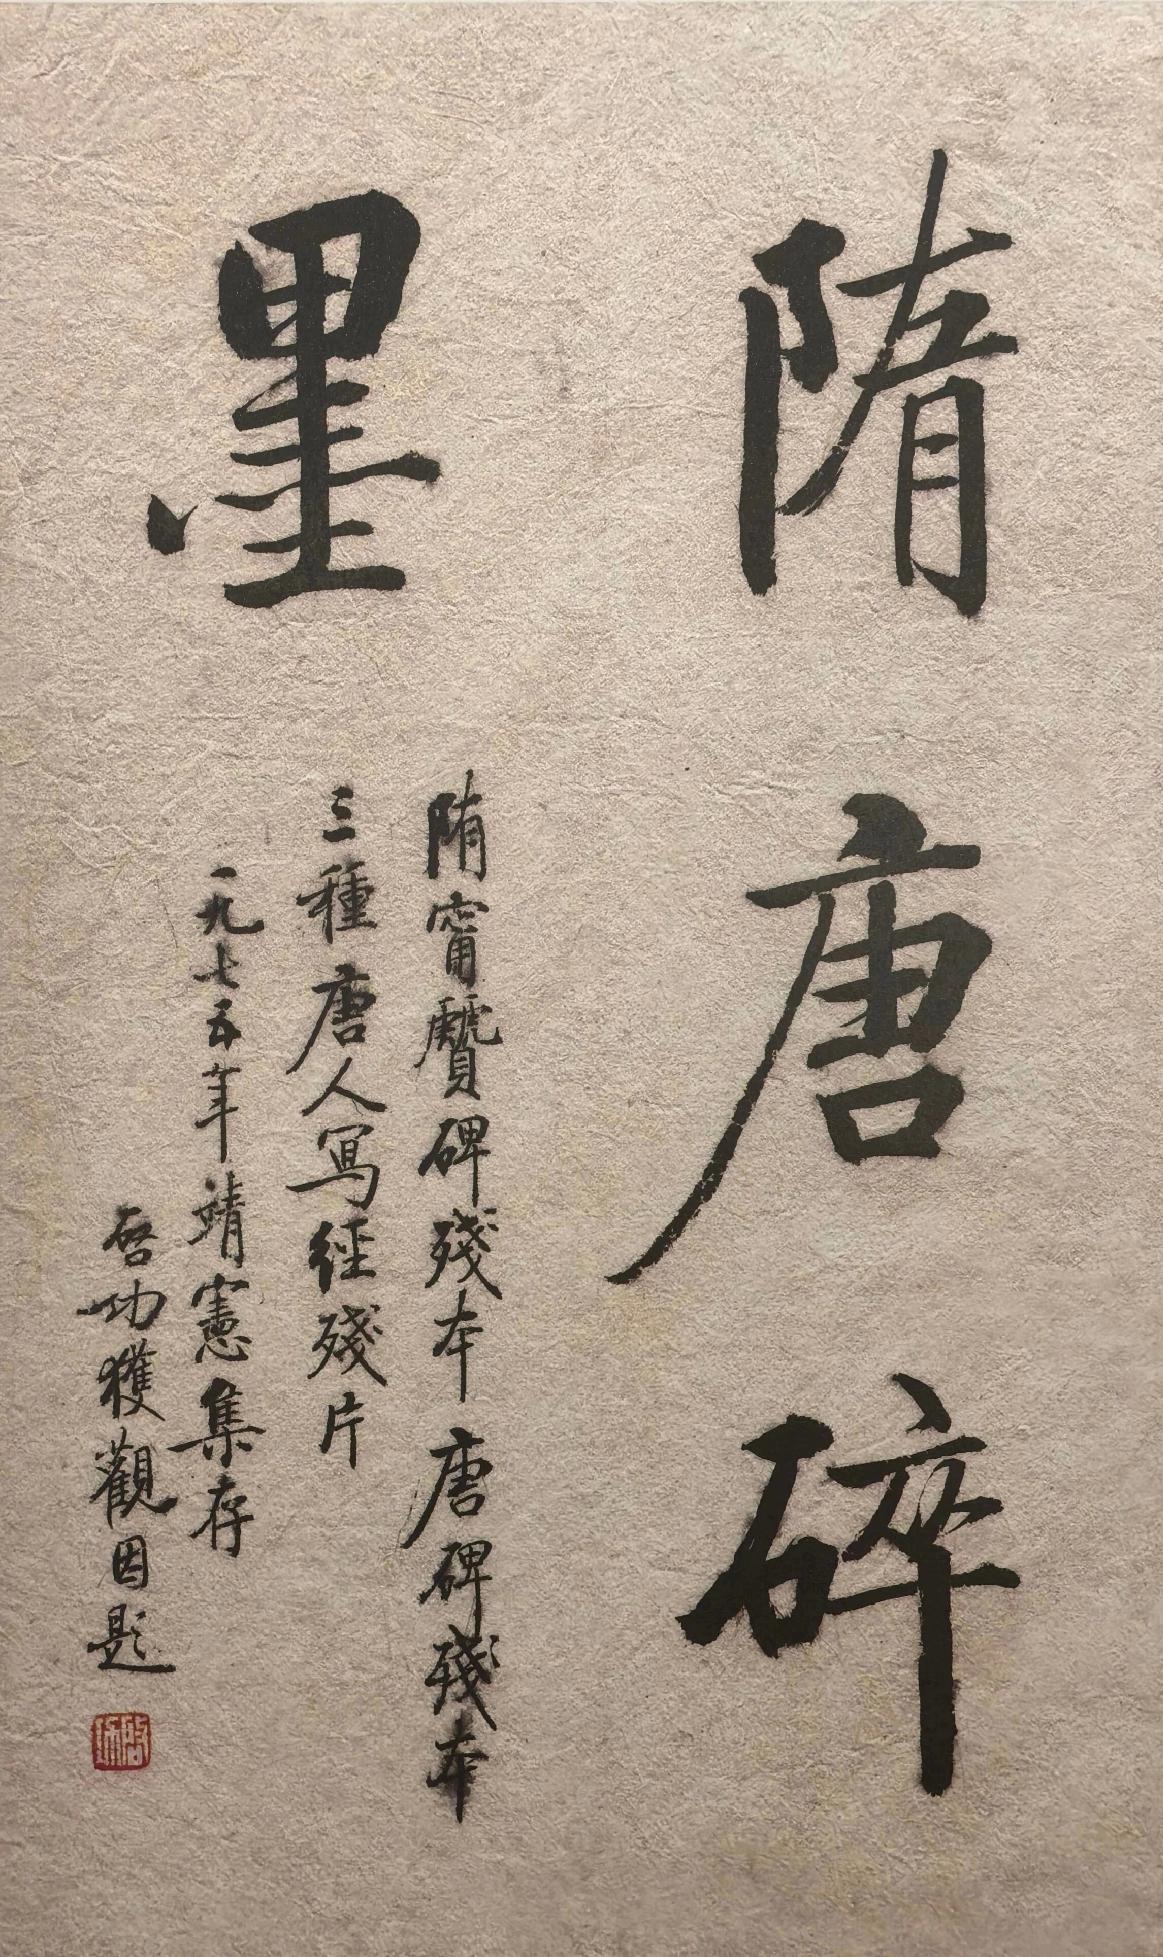 隋唐碎
墨
隋甯贙碑殘本唐碑殘本
三種唐人寫經殘片
一九七五年靖憲集存
啓功獲觀因題